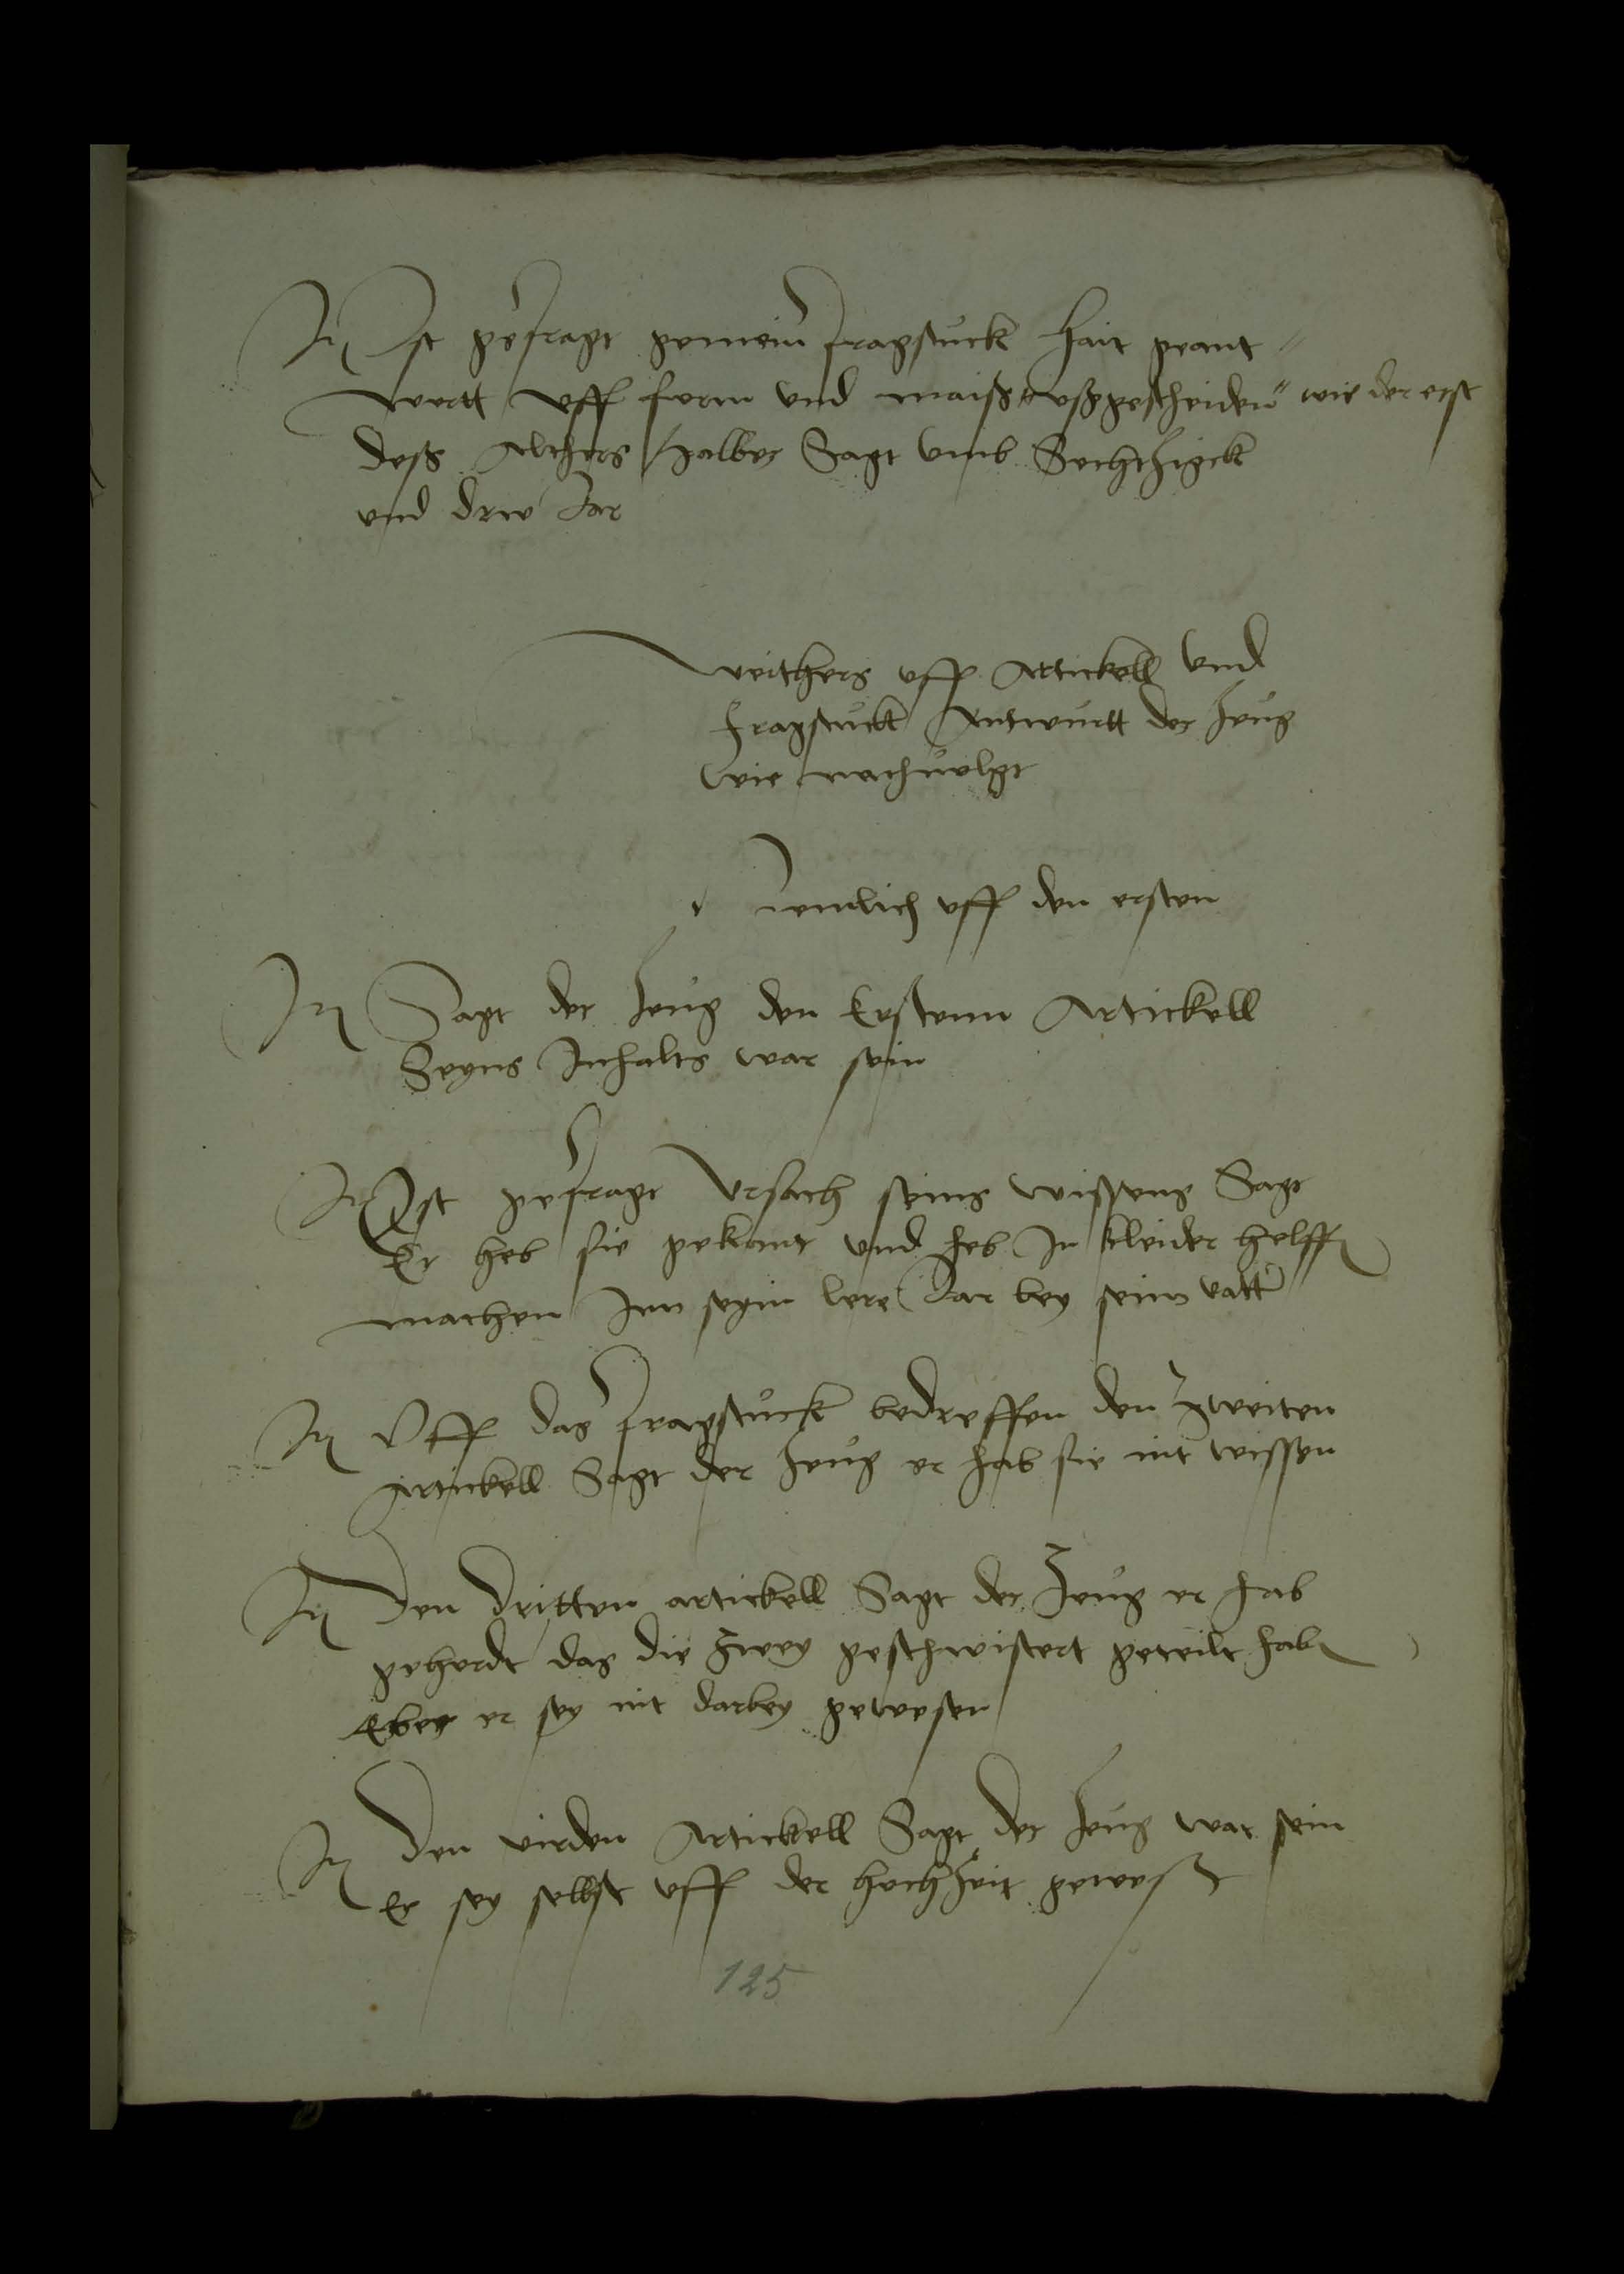 Jt Ist gefragt gemein fragstuck hait geant
wortt vff form vnd maiß vßgescheiden wie der erst
deß Althers halber Sagt vmb Sechtzigck
vnd drw Jar
weithers vff Artickell vnd
fragstuck Antwurtt der zeug
wie nachuolgt
Nemlich vff den ersten
Jt Sagt der zeug den Erstenn Artickell
Seyns Jnhalts war sein
Jt Ist gefragt Vrsach seins wissens Sagt
Er heb sie gekant vnd heb Jn kleider helffen
machen Jnn seyin lere Jar bey seim vatter
Jt Vff das fragstuck bedreffen den zweiten
Artickell Sagt der zeug er hab sie nit wissen
Jt Den dritten artickell Sagt der zeug er hab
gehordt das die zwey geschwistert geteilt haben
Aber er sey nit darbey gewesen
Jt Den virden Artickell Sagt der zeug war sein
Er sey selbst vff der hochzeit geweß
125